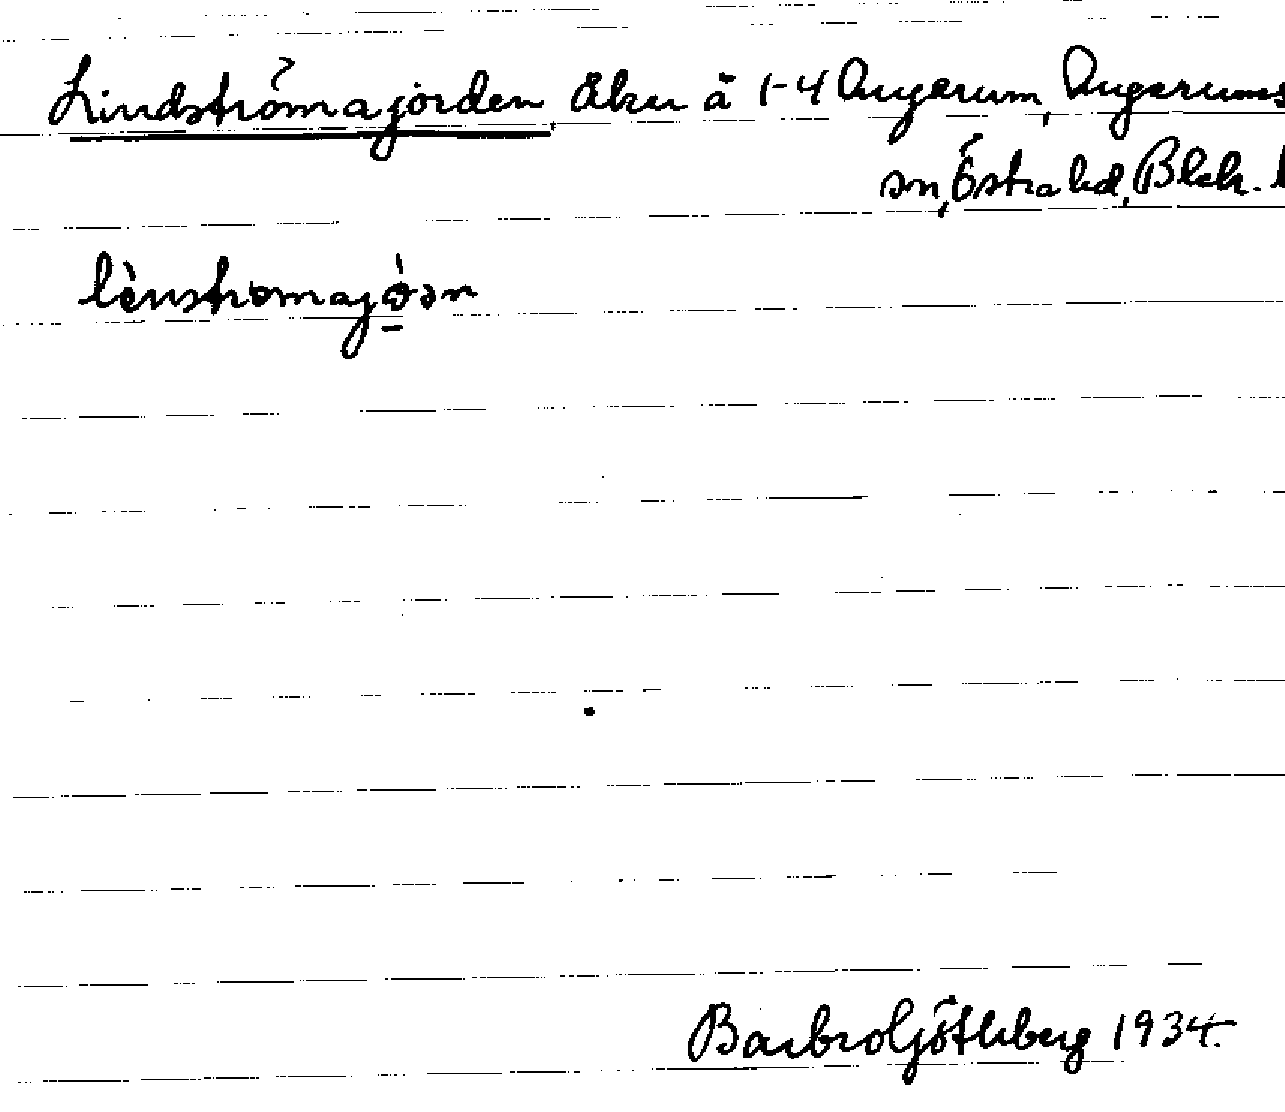 Lindströmajorden, Åker å 1-4 Augerum, Augerums
sn, Östra hd, Blek. l
lènstromajo̱ən
Barbro Götheberg 1934.